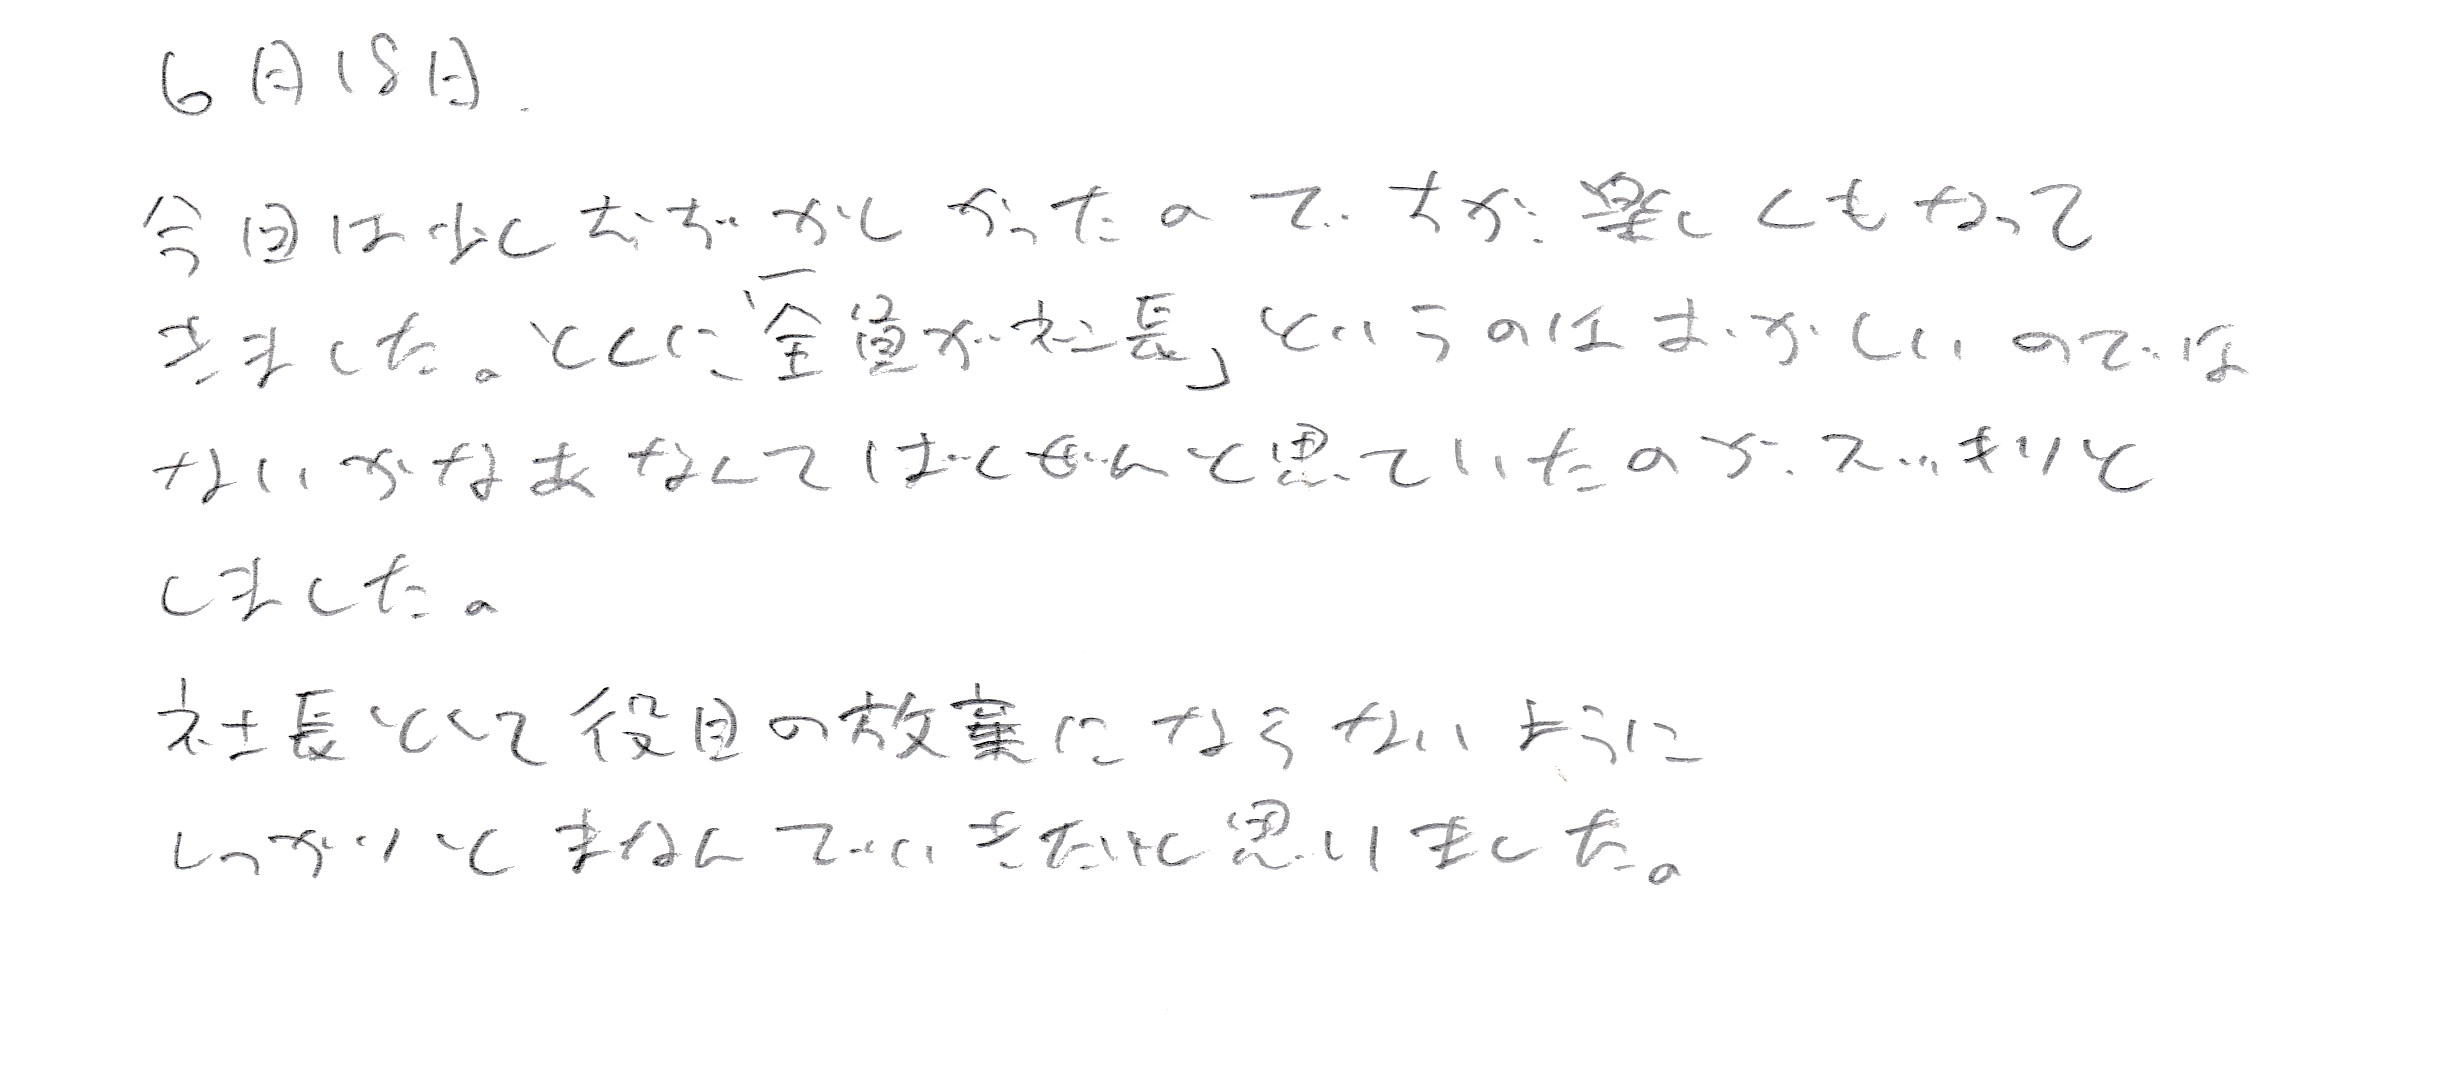 6月18日.
今回は少しむずかしかったのですが楽しくもなって
きました。とくに「全員が社長」というのはおかしいのでは
ないかなあなんてばくぜんと思ていたのがスッキリと
しました。
社長として役目の放棄にならないように
しっかりとまなんでいきたいと思いました。